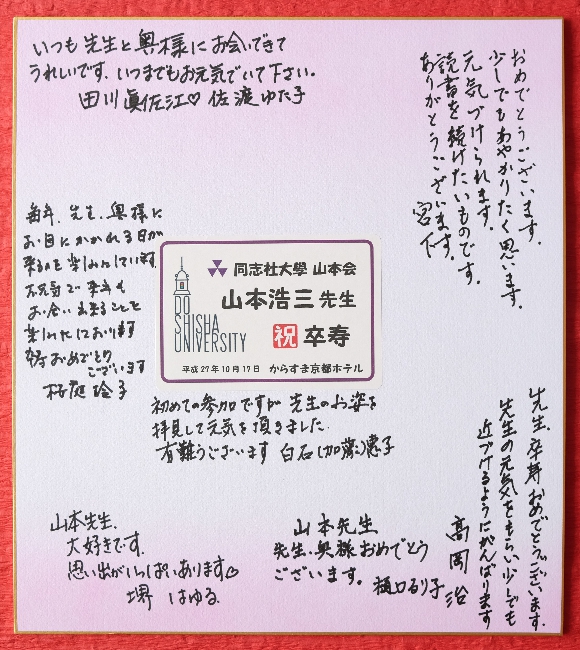 いつも先生と奥様にお会いできて
うれしいです。いつまでもお元気でいて下さい。
田川眞佐江♡ 佐渡ゆた子
おめでとうございます。
少しでもあやかりたく思います。
元気づけられます。
読書を続けたいものです。
ありがとうございます。
宮下
毎年、先生、奥様に
お目にかかれる日が
来るのを楽しみにしています。
お元気で来年も
お会い出来ることを
楽しみにしております
卒寿おめでとう
ございます
桜庭玲子
同志社大學 山本会
山本浩三先生
祝 卒寿
DO
SHISHA
UNIVERSITY
平成27年10月17日 からすま京都ホテル
初めての参加ですが 先生のお姿を
拝見して元気を頂きました
有難うございます 白石(加藤)恵子
先生、卒寿おめでとうございます。
先生の元気をもらい少しでも
近づけるようにがんばります
高岡 治
山本先生、
大好きです。
思い出がいっぱいあります♡
堺 はゆる
山本先生
先生、奥様おめでとう
ございます。 樋口るり子